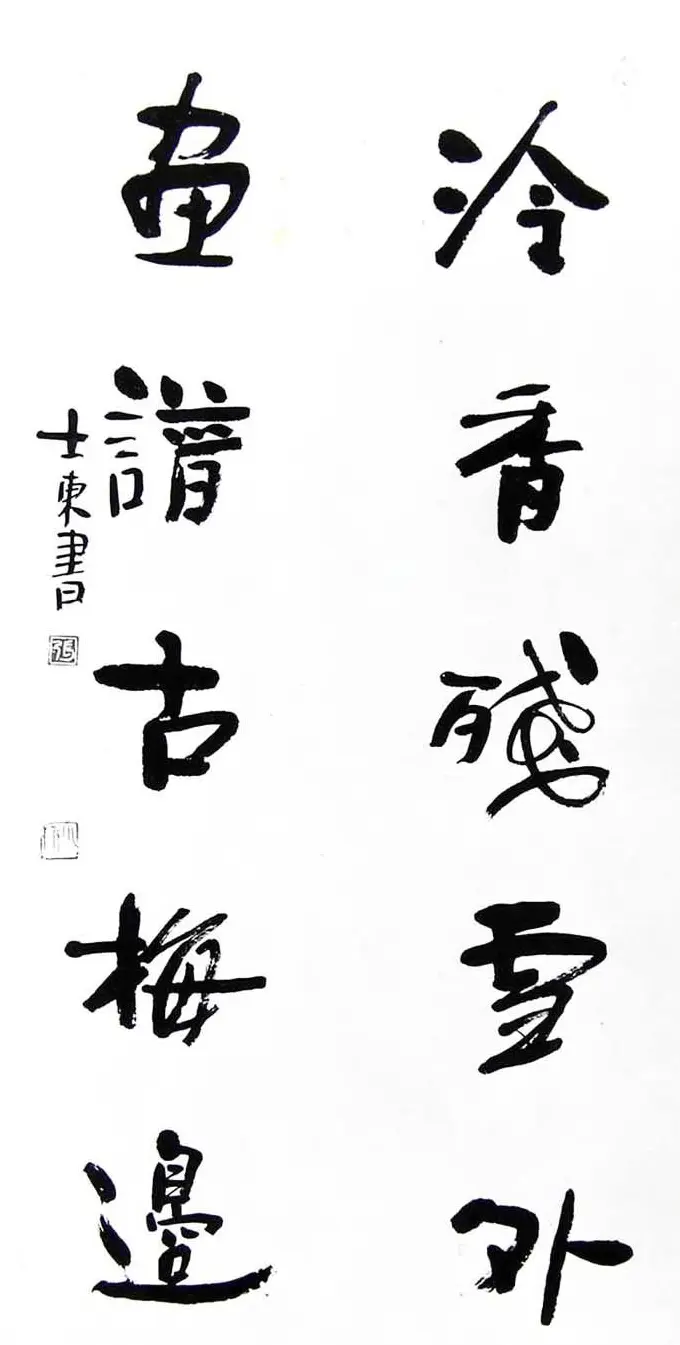 冷香殘雪外
畫譜古梅邊
士東書
張